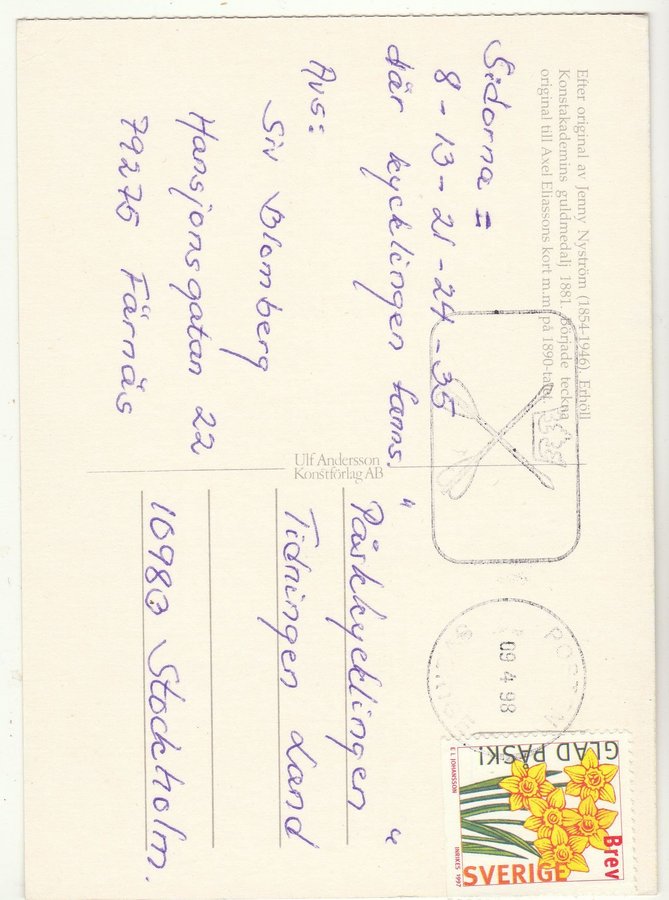 Efter original av Jenny Nyström (1854-1946). Erhöll
Konstakademins guldmedalj 1881. Började teckna
original till Axel Eliassons kort m.m. på 1890-talet.
Sidorna =
8 - 13 - 21 - 24 - 35
där kycklingen fanns.
Avs:
Siv Blomberg
Hansjonsgatan 22
79275 Färnäs
Ulf Andersson
Konstförlag AB
"Påskkycklingen"
Tidningen Land
10980 Stockholm.
POSTEN
09 4 98
GLAD PÅSK!
Brev
SVERIGE
E L JOHANSSON
INRIKES 1997